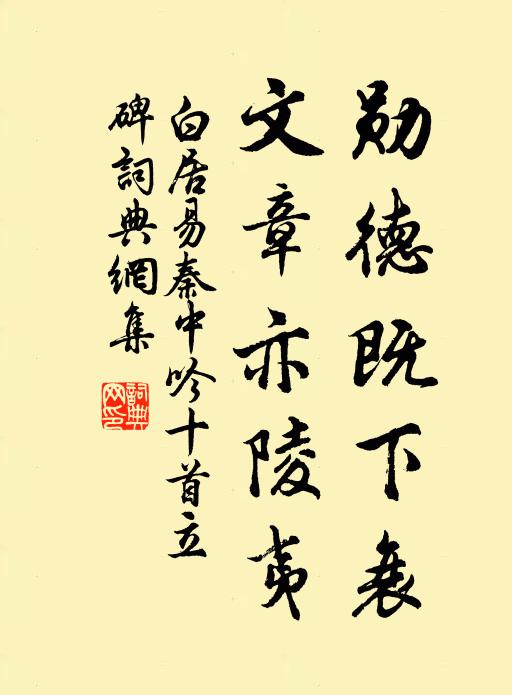 勋德既下衰
文章亦陵夷
白居易秦中吟十首立
碑詞典網集
詞典
网印